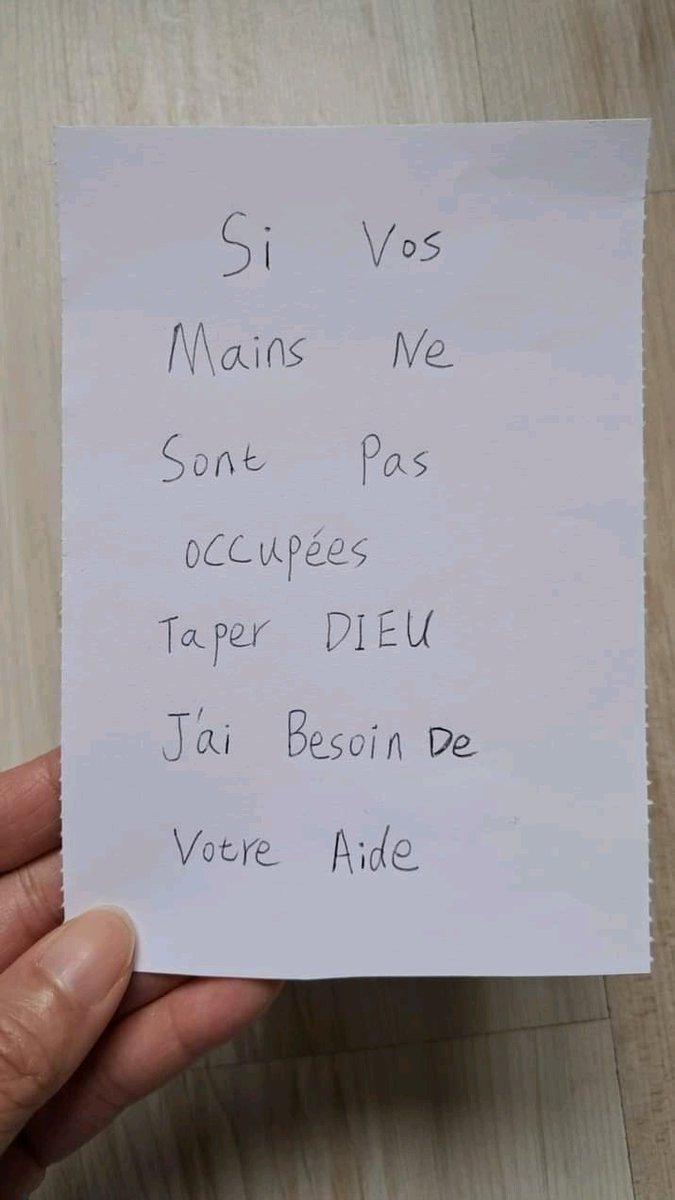 Si Vos
Mains Ne
Sont Pas
occupées
Taper DIEU
J'ai Besoin De
Votre Aide